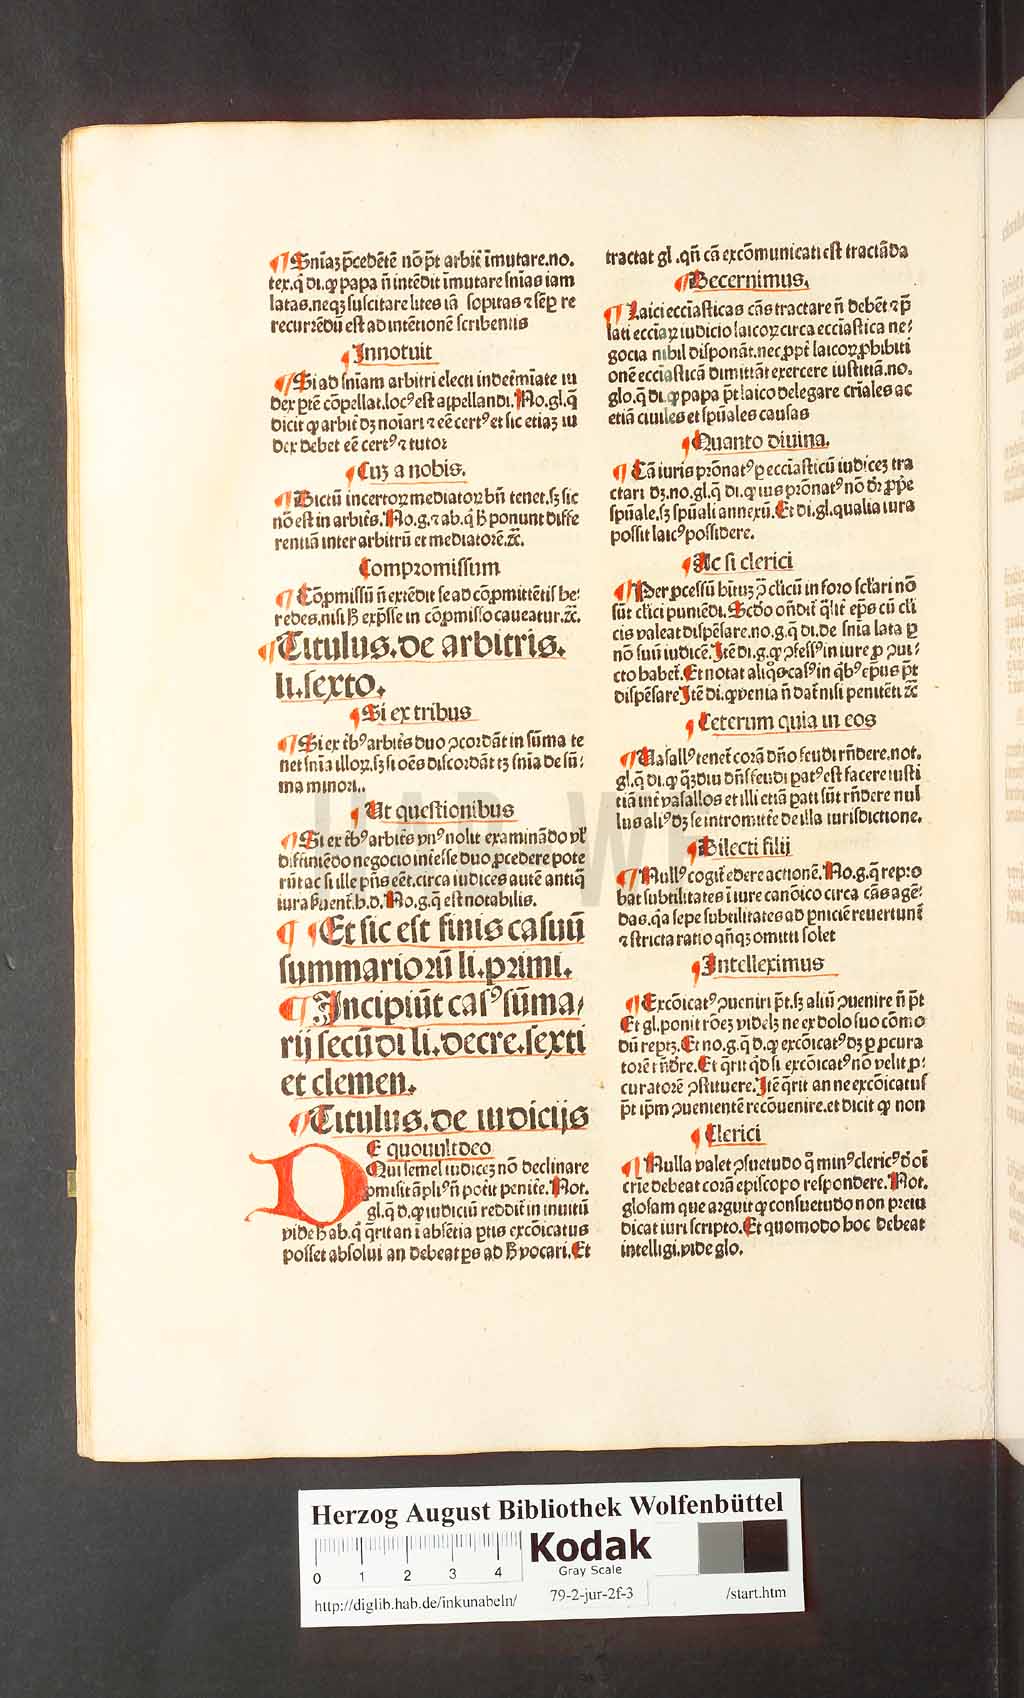 ¶ Snīaʒ p̄cedētē nō pt̄ arbit̄ īmutare.no.
tex.q̄ di.ꝙ papa n̄ intēdit īmutare snīas iam
latas.neqʒ suscitare lites iā sopitas ⁊ sēꝑ re
recurēdū est ad intētionē scribentis
¶ Innotuit
¶ Si ad snīam arbitri electi indeĩmīate iu
dex ꝑtē cōpellat.locꝰ est appellandi. No.gl.q̄
dicit ꝙ arbit̄ dʒ noīari ⁊ eē certꝰ et sic etiaʒ iu
dex debet eē certꝰ ⁊ tutor
¶ Cuʒ a nobis.
¶ Dictū incertoꝝ mediatoꝝ bn̄ tenet.sʒ sic
nō est in arbit̄s. No.g.⁊ ab.q̄ ħ ponunt diffe
rentiā inter arbitrū et mediatorē.⁊c̄.
Compromissum
¶ Cōꝓmissū n̄ extēdit se ad cōꝓmittētis he⸗
redes.nisi ħ exp̄sse in cōꝓmisso caueatur.⁊c̄.
¶ Titulus.de arbitris.
li.sexto.
¶ Si ex tribus
¶ Si ex tribꝰ arbit̄s duo ꝯcordāt in sūma te
net snīa illoꝝ.sʒ si oēs discordāt tʒ snīa de sū⸗
ma minori..
¶ Ut questionibus
¶ Si ex tribꝰ arbit̄s vnꝰ nolit examinādo vl̕
diffiniēdo negocio int̄esse duo ꝓcedere pote
rūt ac si ille pn̄s eēt.circa iudices autē antiq̄
iura ẜuent̄.h.d. No.g.q̄ est notabilis.
¶ ¶ Et sic est finis casuū
summariorū li.primi.
¶ Incipiūt casꝰ sūma⸗
rij secūdi li.decre.sexti
et clemen.
¶ Titulus.de iudicijs
DE quouult deo
Qui semel iudiceʒ nō declinare
ꝓmisit āpliꝰ n̄ potit penit̄e. Not.
gl.q̄ d.ꝙ iudiciū reddit̄ in inuitū
vide h̄ ab.q̄ q̄rit an ī absētia ꝑtis excōicatus
posset absolui an debeat ꝑs ad ħ vocari. Et
tractat gl .qn̄ cā excōmunicati est tractāda
¶ Decernimus.
¶ Laici ecciāsticas cās tractare n̄ debēt ⁊ p̄
lati ecciaꝝ iudicio laicoꝝ circa ecciāstica ne⸗
gocia nihil disponāt.nec ꝓpt̄ laicoꝝ ꝓhibiti
onē ecciāsticā dimittāt exercere iustitiā.no.
glo.q̄ di.ꝙ papa pt̄ laico delegare crīales ac
etiā ciuiles et spūales causas
¶ Quanto diuina.
¶ Cā iuris prōnatꝰ ꝑ ecciāsticū iudiceʒ tra
ctari dʒ.no.gl.q̄ di.ꝙ ius prōnatꝰ nō dr̄ ꝓṕe
spūale.sʒ spūali annexū. Et di.gl.qualia iura
possit laicꝰ possidere.
¶ At si clerici
¶ Per ꝓcessū hituʒ ꝯ̄ clīcū in foro scl̄ari nō
sūt clīci puniēdi. Scdo on̄dit q̄lit̄ ep̄s cū cli
cis valeat dispēsare.no.g.q̄ di.de snīa lata ꝑ
nō suū iudicē. Itē di.g.ꝙ ꝯfessꝰ in iure ꝓ ꝯui⸗
cto habet̄. Et notat aliq̊s casꝰ in q̄bꝰ ep̄us pt̄
dispēsare Itē di.ꝙ venia n̄ dat̄ nisi penitēti ⁊c̄
¶ Ceterum quia in eos
¶ Vasallꝰ tenet̄ corā dn̄o feudi rn̄dere.not.
gl.q̄ di.ꝙ q̄ʒdiu dn̄s feudi patꝰ est facere iusti
tiā int̄ vasallos et illi etiā ꝑati sūt rn̄dere nul
lus aliꝰ dʒ se intromit̄e de illa iurisdictione.
¶ Dilecti filij
¶ Nullꝰ cogit̄ edere actionē. No.g.q̄ repro
bat subtilitates ī iure canōico circa cās agē⸗
das.q̄a sepe subtilitates ad ꝑniciē reuertunt̄
⁊ stricta ratio qn̄qʒ omitti solet
¶ Intelleximus
¶ Excōicatꝰ ꝯueniri pt̄.sʒ aliū ꝯuenire n̄ pt̄
Et gl.ponit rōeʒ videlʒ ne ex dolo suo cōmo
dū reptʒ. Et no.g.q̄ d.ꝙ excōicatꝰ dʒ ꝑ ꝓcura
torē rn̄dre. Et q̄rit qd̄ si excōicatꝰ nō velit ꝓ⸗
curatorē ꝯstituere. Itē q̄rit an ne excōicatus
pt̄ ip̄m ꝯuenientē recōuenire.et dicit ꝙ non
¶ Clerici
¶ Nulla valet ꝯsuetudo q̄ minꝰ clericꝰ d̕ oī
crīe debeat corā episcopo respondere. Not.
glosam que arguit ꝙ consuetudo non preiu
dicat iuri scripto. Et quomodo hoc debeat
intelligi.vide glo.
Herzog August Bibliothek Wolfenbüttel
0 1 2 3 4
Kodak
Gray Scale
http://diglib.hab.de/inkunabeln/ 79-2-jur-2f-3 /start.htm